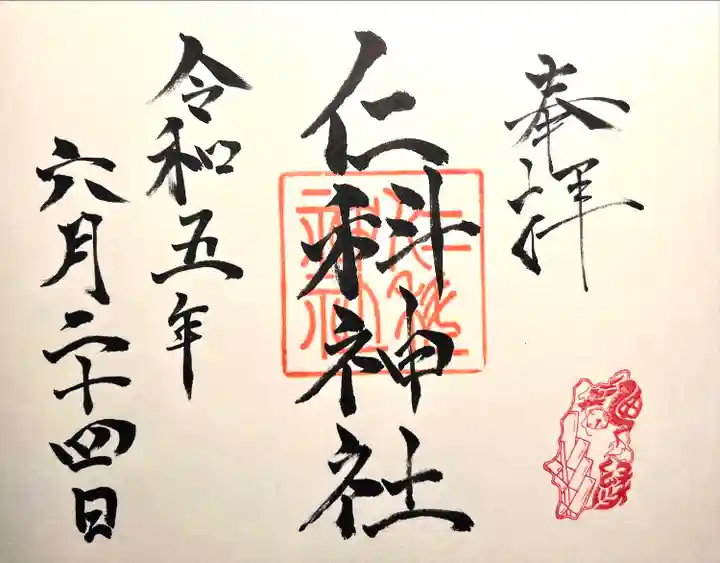 奉拝
仁科神社
令和五年
六月二十四日